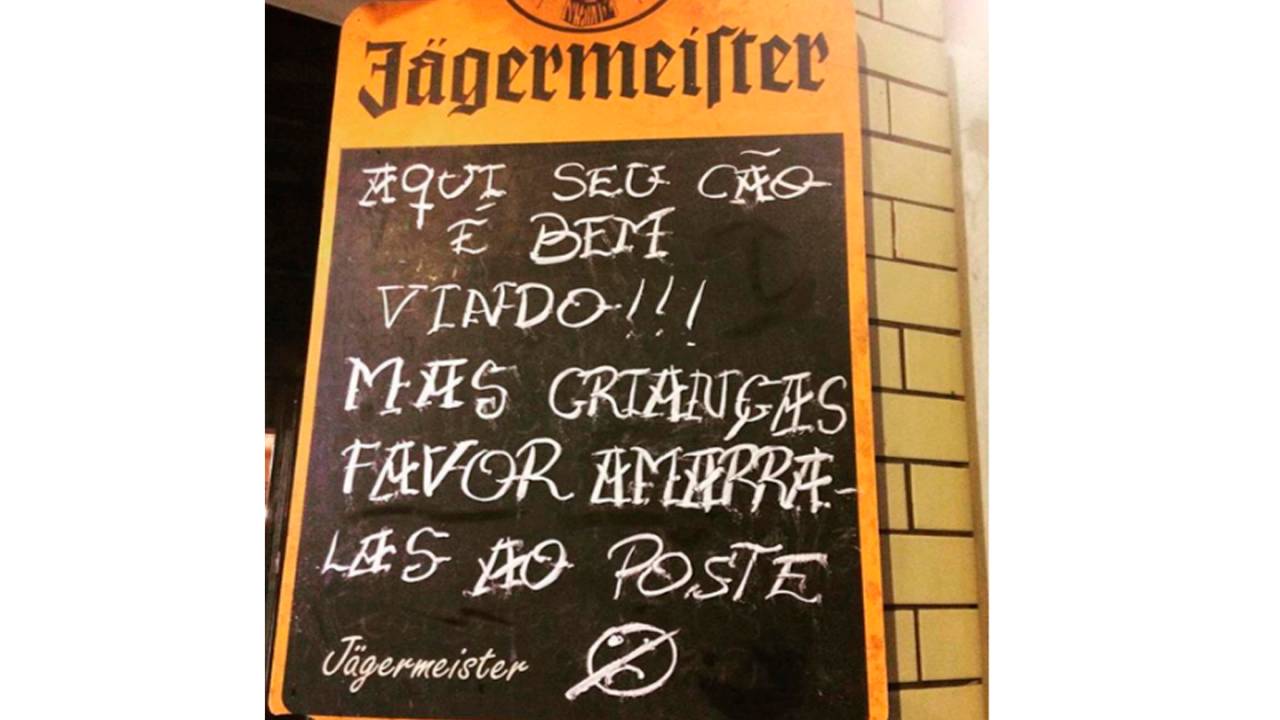 Jägermeiſter
AQUI SEU CÃO
É BEM
VINDO!!!
MAS CRIANÇAS
FAVOR AMARRA-
LAS AO POSTE
Jägermeister